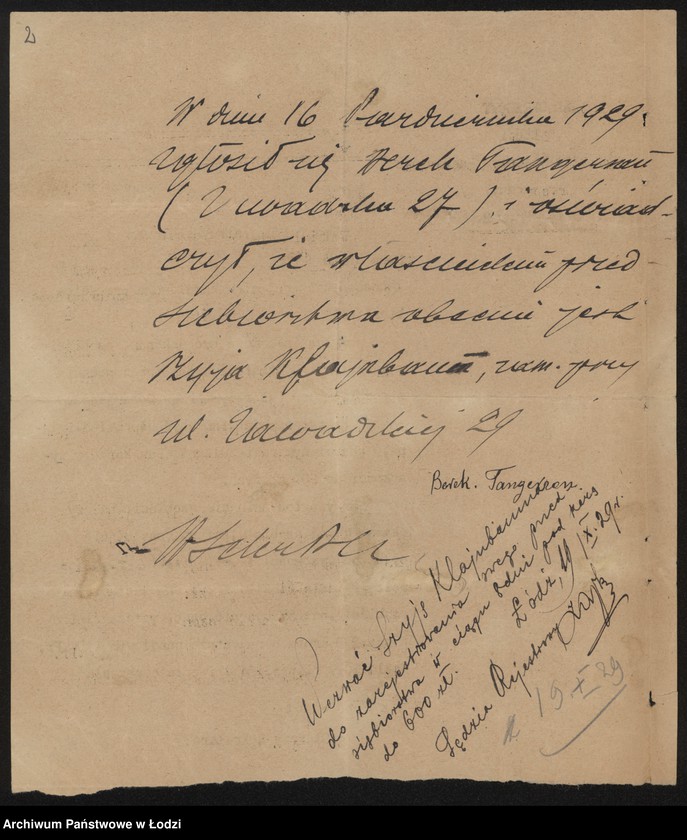 2
W dniu 16 Października 1929.
zgłosił się Berek Tangeman
(Zawadzka 27) i oświad-
czył, że właścicielem przed-
siebiorstwa obecnie jest
Szyja Klajnbaum, zam. przy
ul. Zawadzkiej 29
Berek. Tangeman
Wezwać Szyję Klajnbauma
do zarejestrowania swego przed
siębiorstwa w ciągu 8 dni pod rygo
do 600 zł.
Łódź, 19/X.29r.
Sędzia Rejestrowy
19 X 29
Archiwum Państwowe w Łodzi